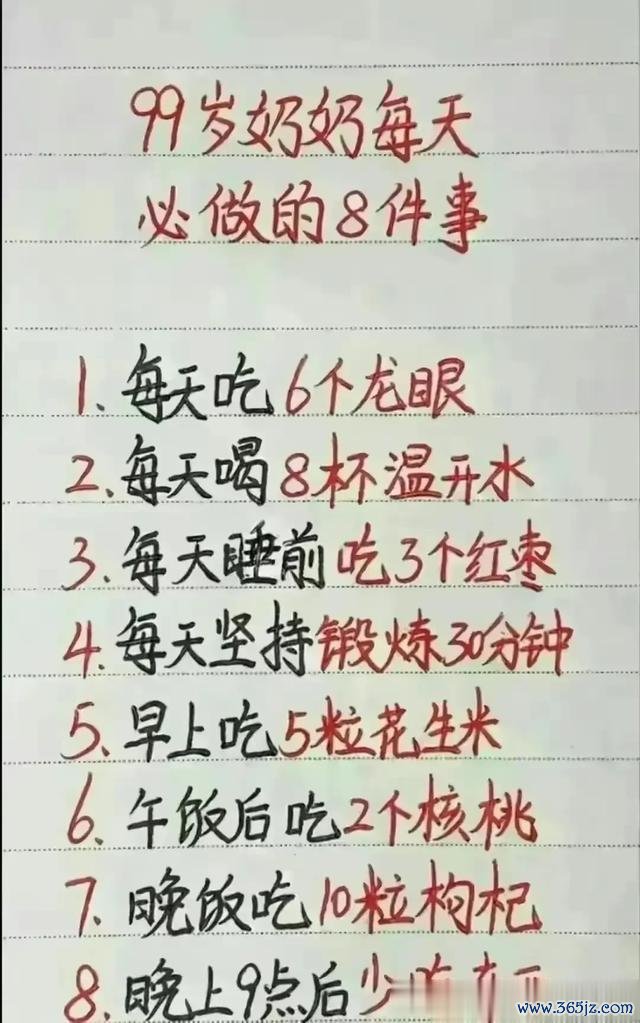 99岁奶奶每天
必做的8件事
1. 每天吃6个龙眼
2. 每天喝8杯温开水
3. 每天睡前吃3个红枣
4. 每天坚持锻炼30分钟
5. 早上吃5粒花生米
6. 午饭后吃2个核桃
7. 晚饭吃10粒枸杞
8. 晚上9点后少吃东西
www.365jz.com